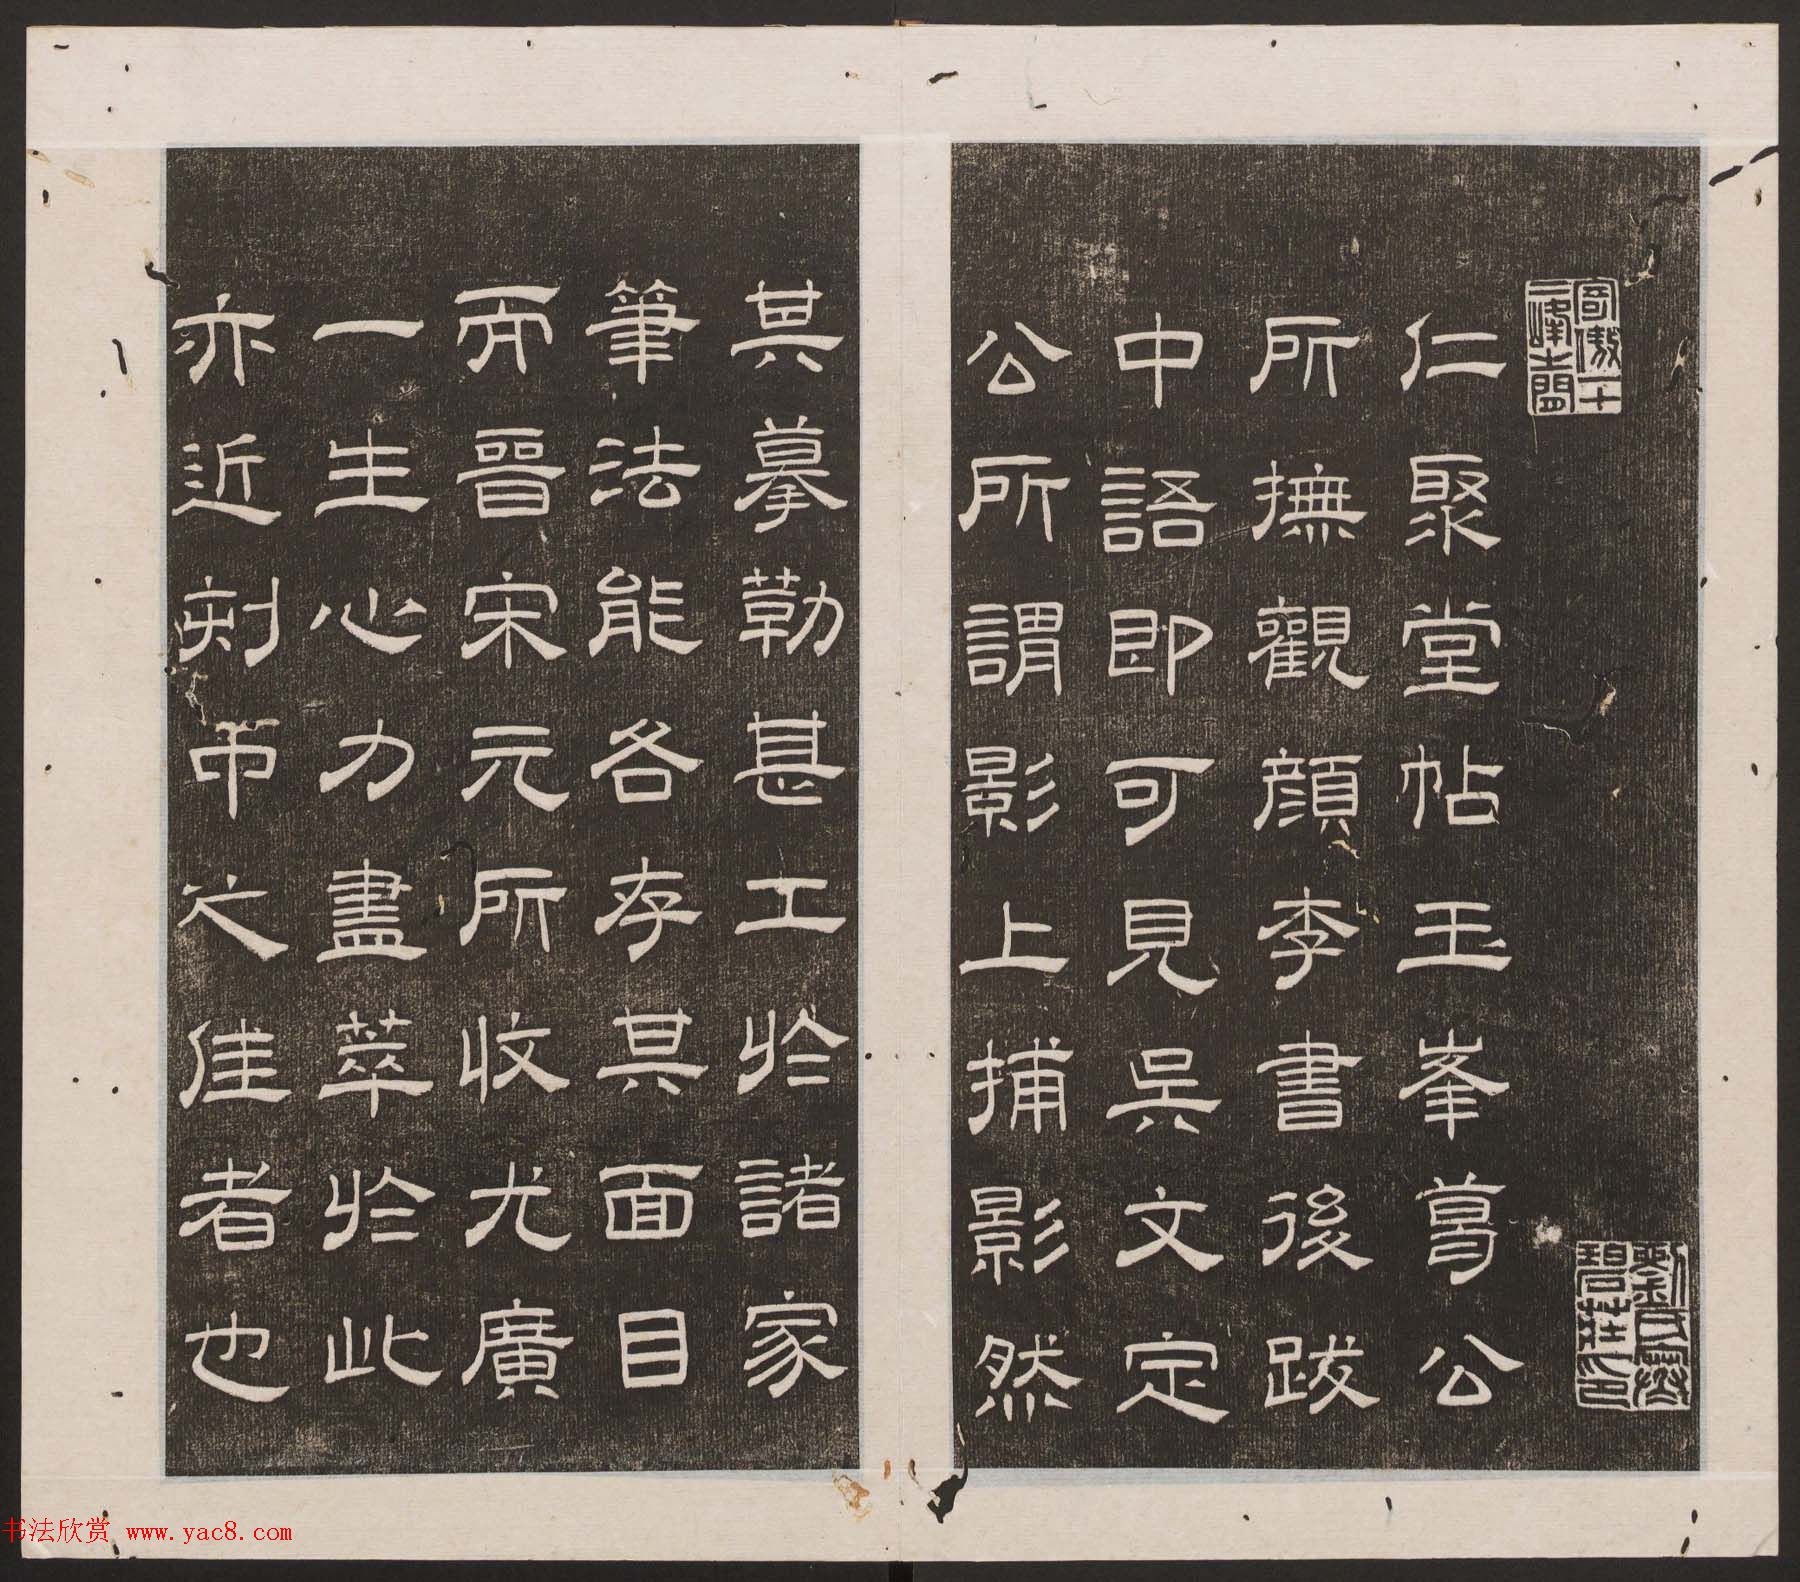 仁聚堂帖玉峯葛公
所撫觀顏李書後跋
中語即可見吳文定
公所謂影上捕影然
劉氏寒碧莊印
其摹勒甚工於諸家
筆法能各存其面目
而晉宋元所收尤廣
一生心力盡萃於此
亦近刻帀之佳者也
书法欣赏 www.yac8.com